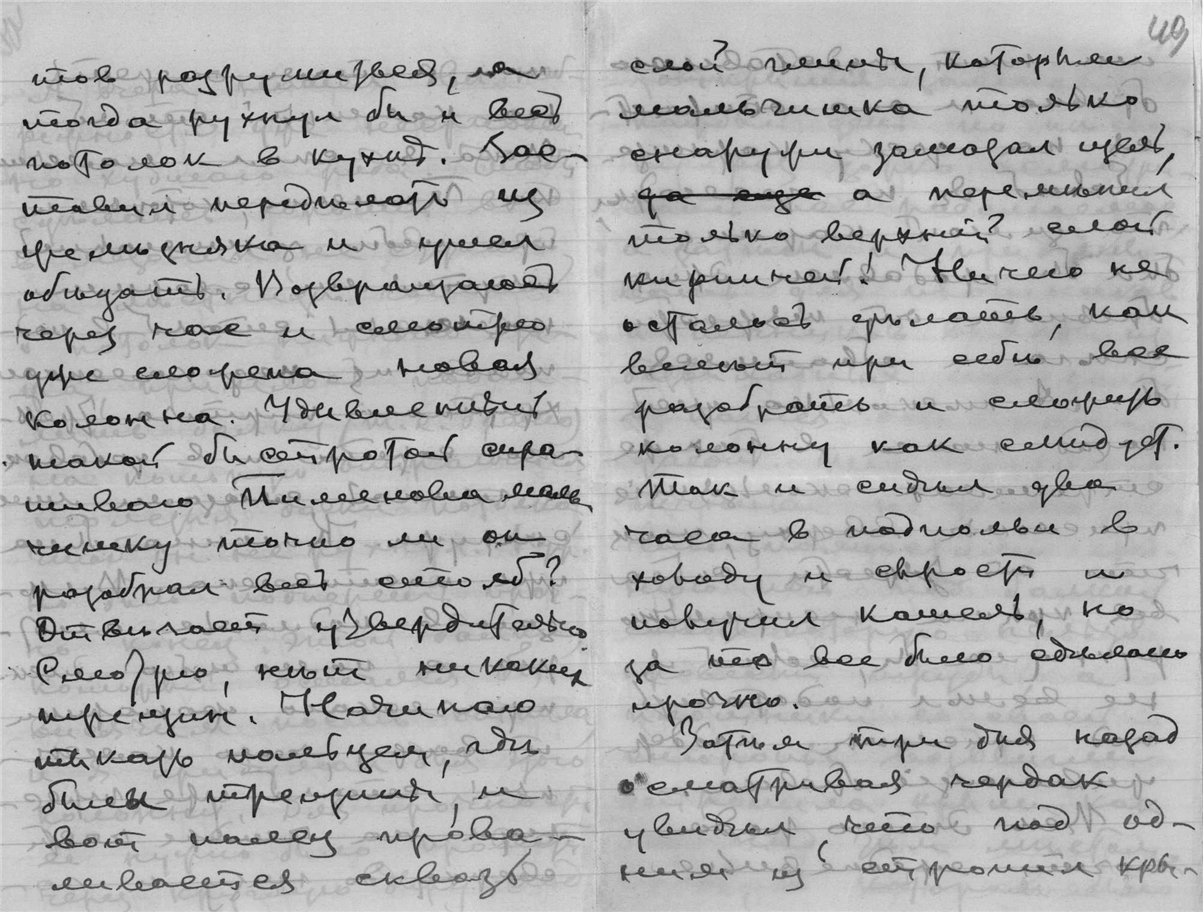 тов разрушился, а
тогда рухнул бы и весь
потолок в кухнѣ. Зас-
тавил передѣлать из
и ушел
обѣдать. Возвращаюсь
через час и смотрю
уже сложена новая
колонна. Удивленный
такой быстротой спра-
шиваю Пименовна маль
чишку точно ли он
разобрал весь столб?
Отвѣчает утвердительно
Смотрю, нѣт никаких
трещин. Начинаю
тыкать пальцем, гдѣ
были трещины, и
вот палец прова-
ливается сквозь
49
слой глины, которым
мальчишка только
снаружи замазал щель,
да еще а перемѣнил
только верхний слой
кирпичей! Ничего не
осталось дѣлать, как
велѣть при себѣ все
разобрать и сложить
колонну как слѣдует.
Так и сидѣл два
часа в подпольи в
холоду и сырости и
получил кашель, но
за то все было сдѣлано
прочно.
Затѣм три дня назад
осматривая чердак
увидѣл что под од-
ним из стропил кры-